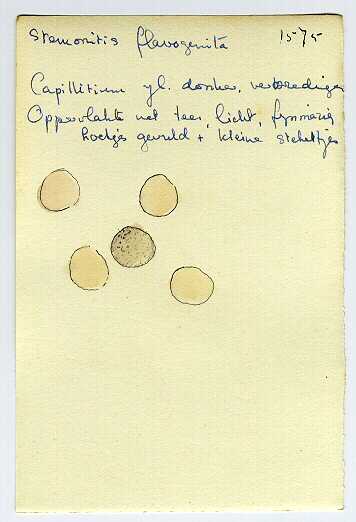 Stemonitis flavogenita 1575
Capillitium yl. donker,
Oppervlakte net teer, licht, fijnmazig
hoekjes gevuld + kleine stekeltjes